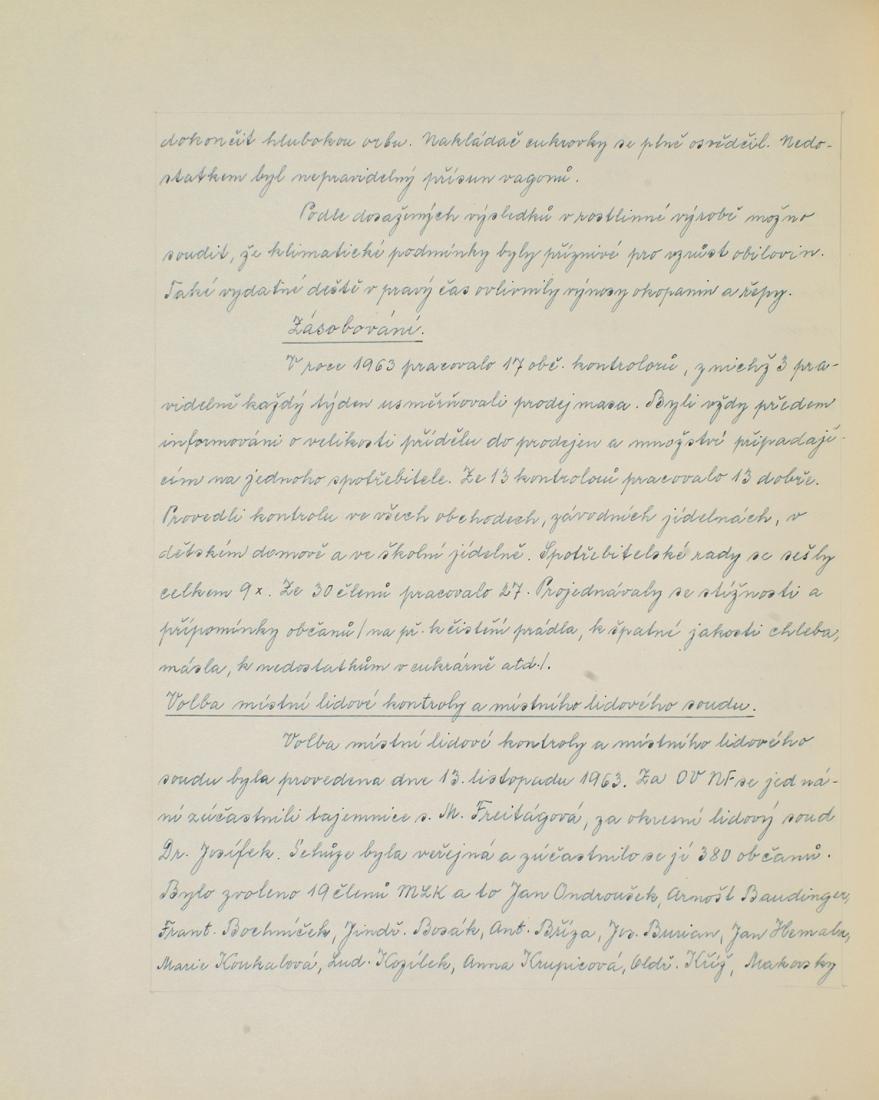 dokončit hlubokou orbu. Nakládač cukrovky se plně osvědčil. Nedo-
statkem byl nepravidelný přísun vagonů.
Podle dosažených výsledků v rostlinné výrobě možno
soudit, že klimatické podmínky byly příznivé pro vzrůst obilovin.
Také vydatné deště v pravý čas ovlivnily výnosy okopanin a řepy.
Zásobování.
V roce 1963 pracovalo 17 obč. kontrolorů, z nichž 3 pra-
videlně každý týden usměrňovali prodej masa. Byli vždy předem
informováni o velikosti přídělu do prodejen a množství připadají-
cím na jednoho spotřebitele. Ze 13 kontrolorů pracovalo 13 dobře.
Provedli kontrolu ve všech obchodech, závodních jídelnách, v
dětském domově a ve školní jídelně. Spotřebitelské rady se sešly
celkem 9x. Ze 30 členů pracovalo 27. Projednávaly se stížnosti a
připomínky občanů / na př. k čistění prádla, k špatné jakosti chleba,
másla, k nedostatkům v cukrárně atd /.
Volba místní lidové kontroly a místního lidového soudu.
Volba místní lidové kontroly a místního lidového
soudu byla provedena dne 13. listopadu 1963. Za OV NF se jedná-
ní zúčastnili tajemnice s. M. Freitágová, za okresní lidový soud
Dr. Josífek. Schůze byla veřejná a zúčastnilo se jí 380 občanů.
Bylo zvoleno 19 členů MLK a to Jan Ondroušek, Arnošt Baudinger,
Frant. Bochníček, Jindř. Bosák, Ant. Bříza, Jos. Burian, Jan Hemala,
Marie Koukalová, Lud. Kozílek, Anna Krupicová, Oldř. Kříž, Makovsky